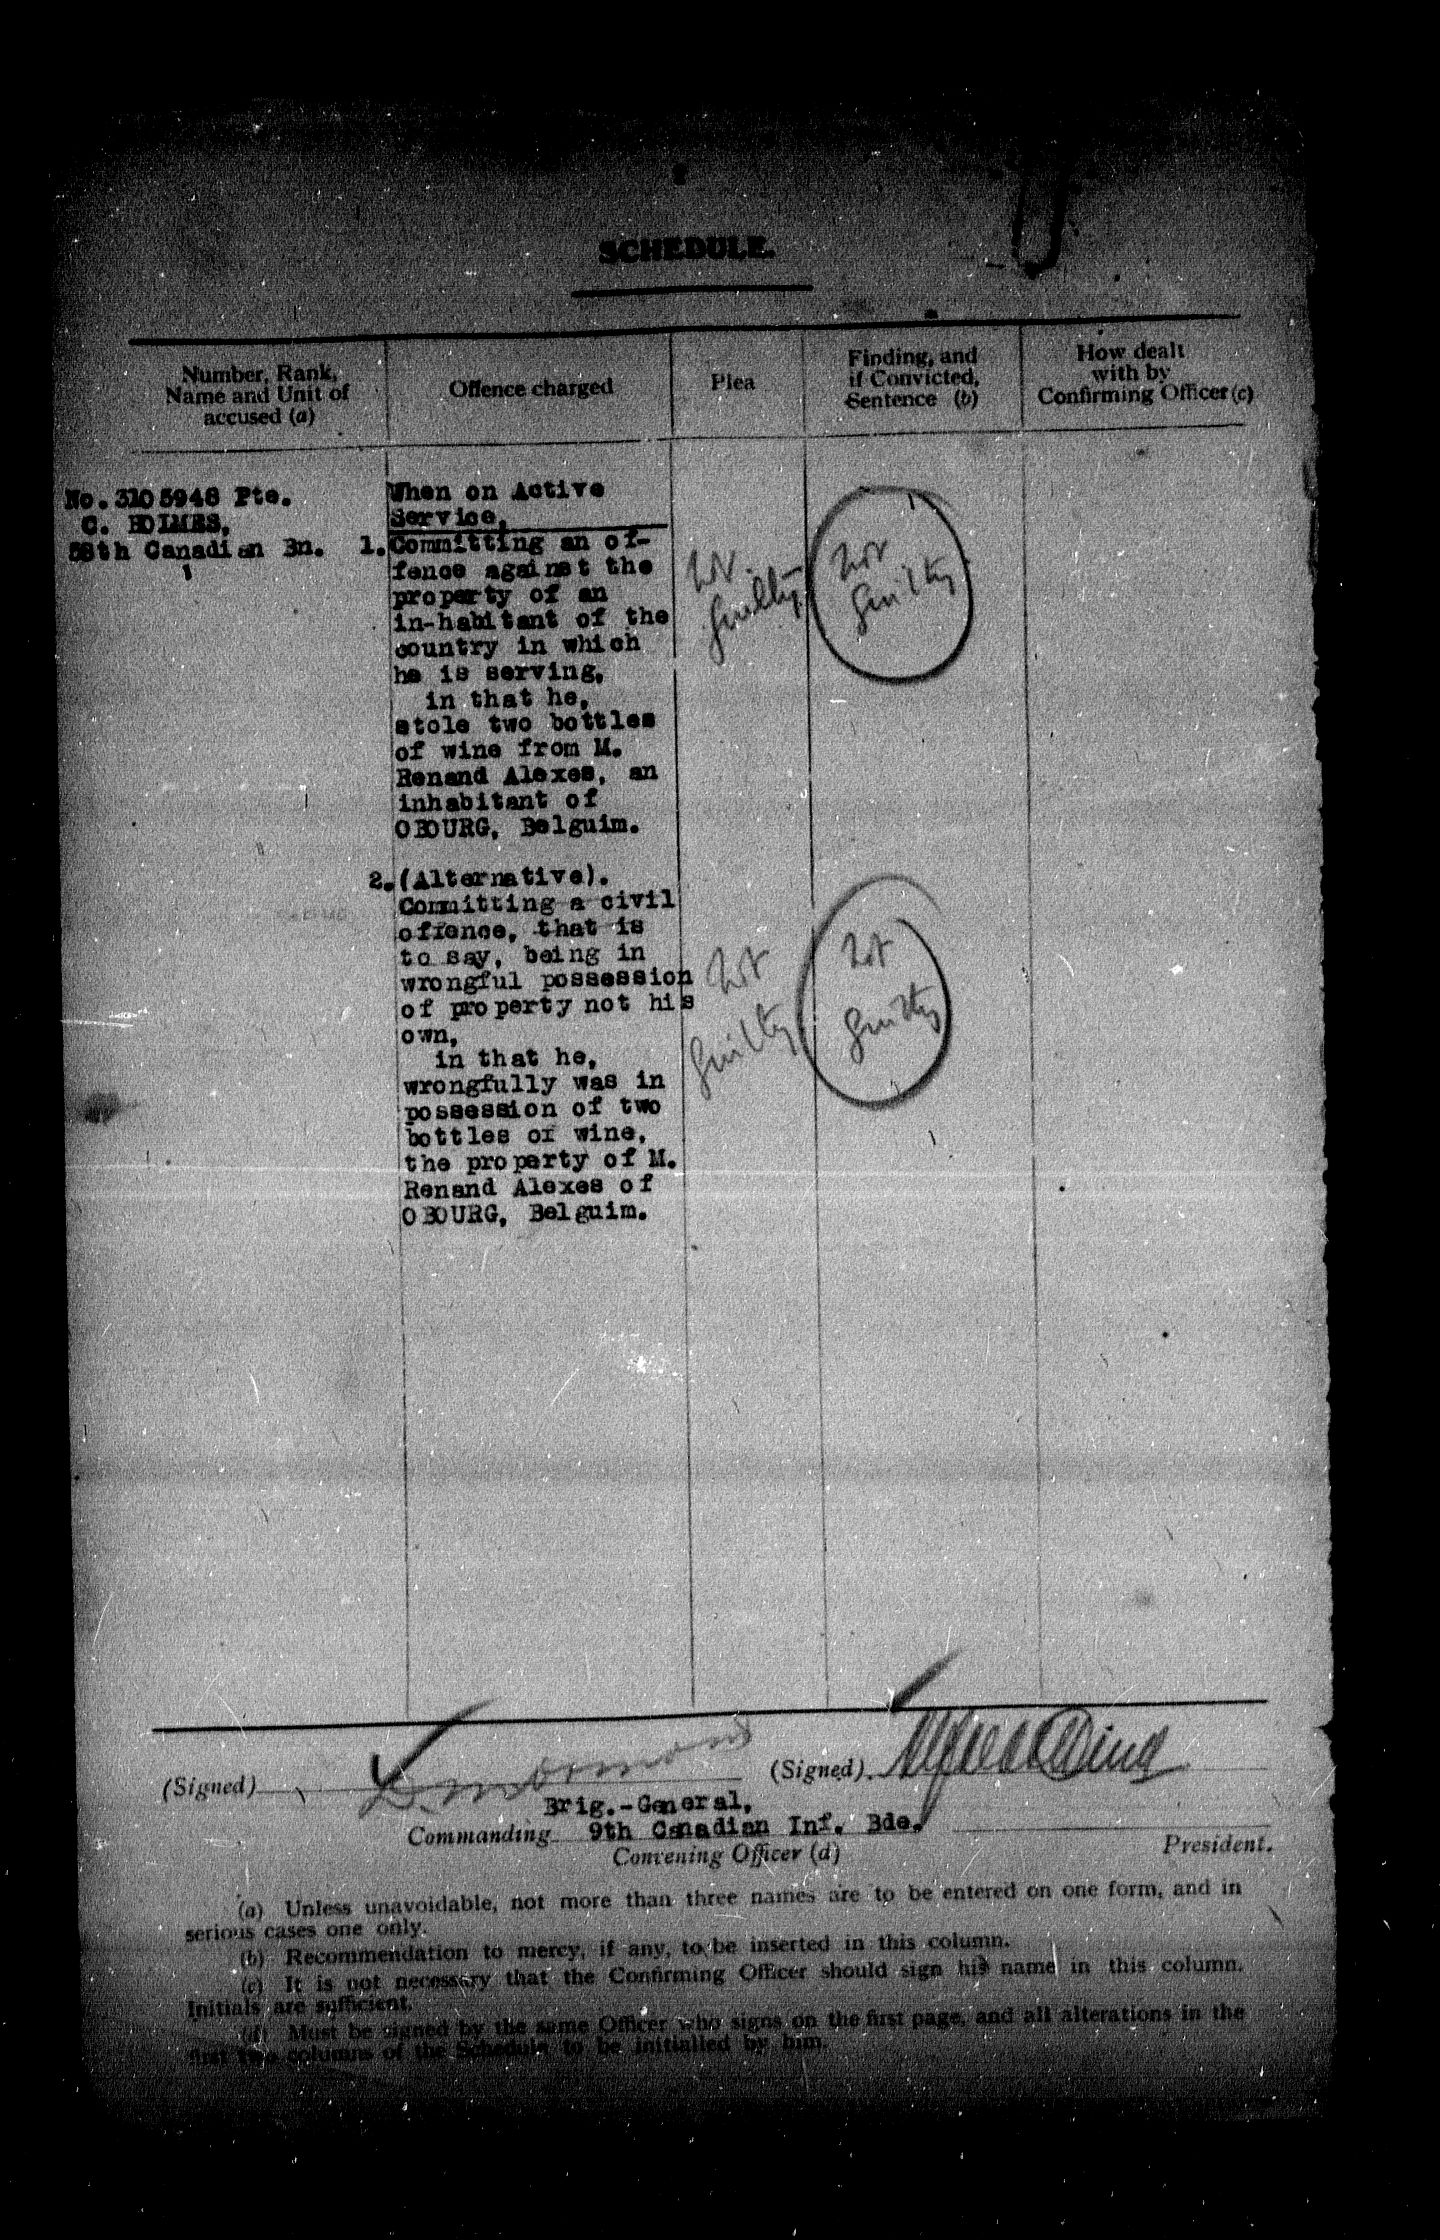 SCHEDULE.
Number, Rank,
Name and Unit of
accused (a)
Offence charged
Plea
Finding, and
if Convicted,
Sentence (b)
How dealt
with by
Confirming Officer (c)
No. 3105948 Pte.
C. HOLMES,
58th Canadian Bn.
When on Active
Service,
1. Committing an of-
fence against the
property of an
in-habitant of the
country in which
he is serving,
in that he,
stole two bottles
of wine from M.
Renand Alexes, an
inhabitant of
OBOURG, Belguim.
Not
Guilty
Not
Guilty
2. (Alternative).
Committing a civil
offence, that is
to say, being in
wrongful possession
of property not his
own,
in that he,
wrongfully was in
possession of two
bottles of wine,
the property of M.
Renand Alexes of
OBOURG, Belguim.
Not
Guilty
Not
Guilty
(Signed)
Brig.-General,
Commanding 9th Canadian Inf. Bde.
Convening Officer (d)
(Signed)
President.
(a) Unless unavoidable, not more than three names are to be entered on one form, and in
serious cases one only.
(b) Recommendation to mercy, if any, to be inserted in this column.
(c) It is not necessary that the Confirming Officer should sign his name in this column.
Initials are sufficient.
(d) Must be signed by the same Officer who signs on the first page, and all alterations in the
first two columns of the Schedule to be initialled by him.